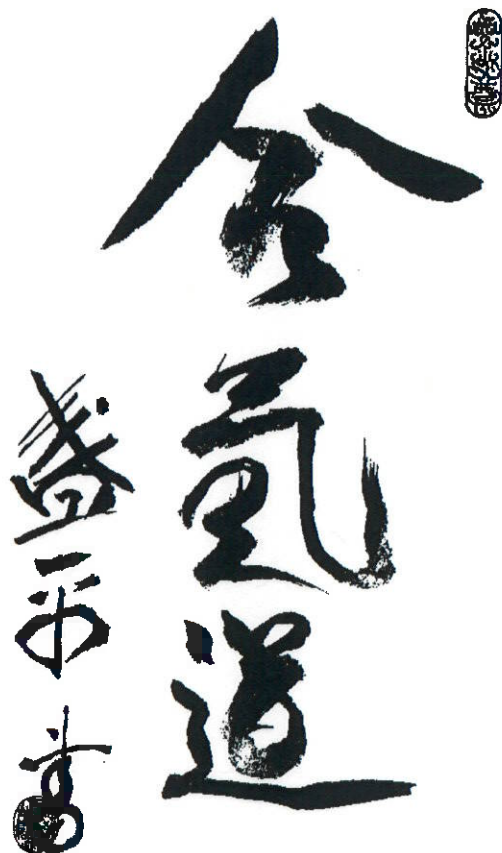 合氣道
盛平書